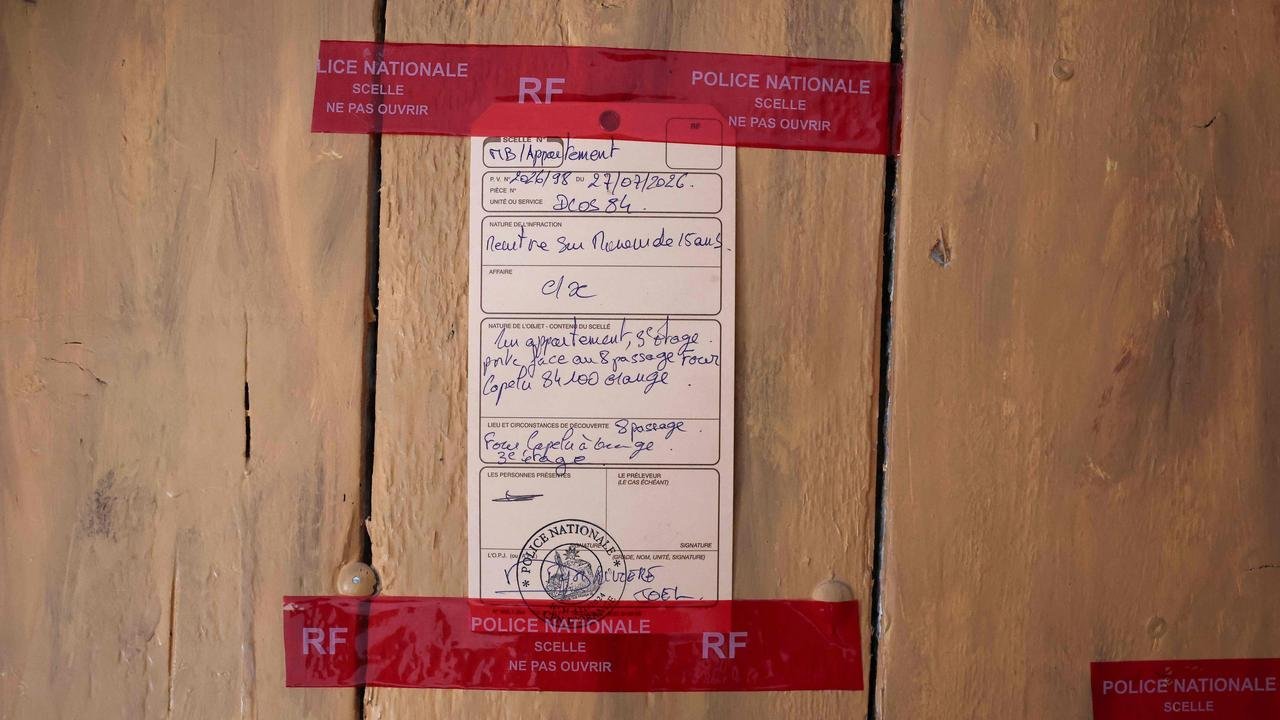 LICE NATIONALE
SCELLE
NE PAS OUVRIR
RF
POLICE NATIONALE
SCELLE
NE PAS OUVRIR
SCELLÉ N°
RF
MB/Appartement
P.V. N° 2026/98 DU 27/07/2026.
PIÈCE N°
UNITÉ OU SERVICE DCOS 84.
NATURE DE L'INFRACTION
meurtre sur Mineur de 15 ans.
AFFAIRE
c/x
NATURE DE L'OBJET - CONTENU DU SCELLÉ
Un appartement, 3e étage
porte face au 8 passage Four
Capelu 84100 orange.
LIEU ET CIRCONSTANCES DE DÉCOUVERTE 8 passage
Four Capelu à
3e étage
LES PERSONNES PRÉSENTES
LE PRÉLEVEUR
(LE CAS ÉCHÉANT)
SIGNATURE
SIGNATURE
L'O.P.J. (ou
(GRADE, NOM, UNITÉ, SIGNATURE)
POLICE NATIONALE
JOEL
RF
POLICE NATIONALE
SCELLE
NE PAS OUVRIR
RF
POLICE NATIONALE
SCELLE